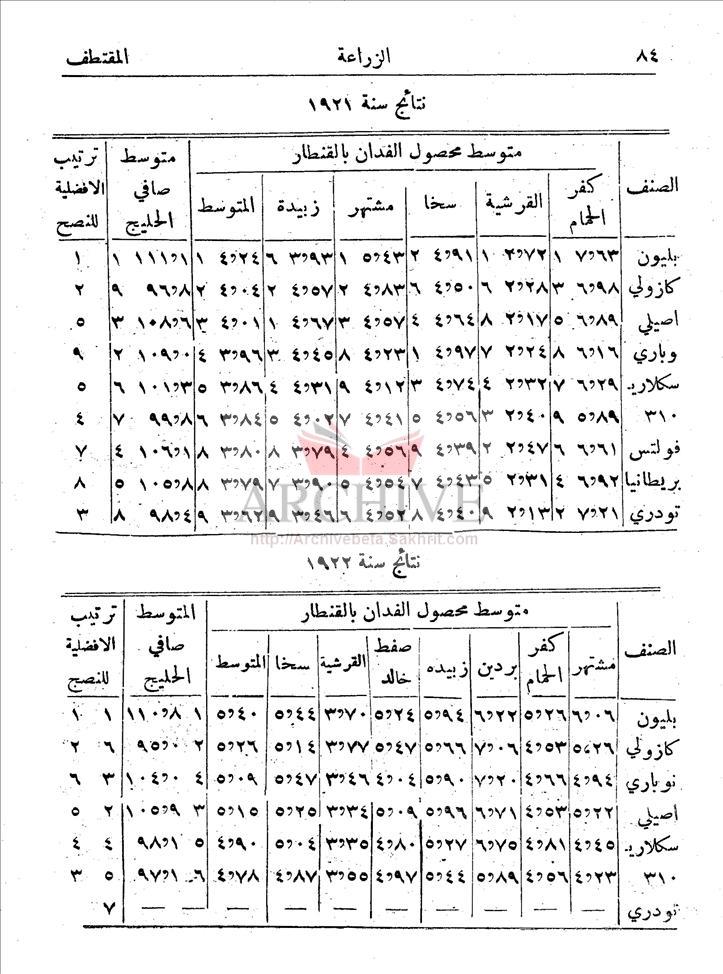 ٨٤ الزراعة المقتطف
نتائج سنة ١٩٢١
الصنف متوسط محصول الفدان بالقنطار متوسط صافي الحليج ترتيب الافضلية للنصج
كفر الحمام القرشية سخا مشتهر زبيدة المتوسط
بليون ٧٫٦٣ ١ ٢٫٧٢ ١ ٤٫٩١ ٢ ٥٫٤٣ ١ ٣٫٩٣ ٦ ٤٫٢٤ ١ ١١١٫١ ١ ١
كازولي ٦٫٩٨ ٣ ٢٫٢٨ ٦ ٤٫٥٠ ٦ ٤٫٨٣ ٢ ٤٫٥٧ ٢ ٤٫٠٤ ٢ ٩٦٫٨ ٩ ٢
اصيلي ٦٫٨٩ ٥ ٢٫١٧ ٨ ٤٫٦٤ ٤ ٤٫٥٧ ٣ ٤٫٦٧ ١ ٤٫٠١ ٣ ١٠٨٫٦ ٣ ٥
وباري ٦٫١٦ ٨ ٢٫٢٤ ٧ ٤٫٩٧ ١ ٤٫٢٣ ٨ ٤٫٤٥ ٣ ٣٫٩٦ ٤ ١٠٩٫٠ ٢ ٩
سكلاريد ٦٫٢٩ ٧ ٢٫٣٢ ٤ ٤٫٧٤ ٣ ٤٫١٢ ٩ ٤٫٣١ ٤ ٣٫٨٦ ٥ ١٠١٫٣ ٦ ٥
٣١٠ ٥٫٨٩ ٩ ٢٫٤٠ ٣ ٤٫٥٦ ٥ ٤٫٤١ ٧ ٤٫٠٢ ٥ ٣٫٨٤ ٦ ٩٩٫٨ ٧ ٤
فولتس ٦٫٦١ ٦ ٢٫٤٧ ٢ ٤٫٣٩ ٩ ٤٫٥٦ ٤ ٣٫٧٩ ٨ ٣٫٨٠ ٨ ١٠٦٫١ ٤ ٧
بريطانيا ٦٫٩٢ ٤ ٢٫٣١ ٥ ٤٫٤٣ ٧ ٤٫٥٤ ٥ ٣٫٩٠ ٧ ٣٫٧٩ ٨ ١٠٥٫٨ ٥ ٨
تودري ٧٫٢١ ٢ ٢٫١٣ ٩ ٤٫٤٠ ٨ ٤٫٥٢ ٦ ٣٫٤٦ ٩ ٣٫٦٢ ٩ ٩٨٫٤ ٨ ٣
ARCHIVE
http://Archivebeta.Sakhrit.com
نتائج سنة ١٩٢٢
الصنف متوسط محصول الفدان بالقنطار المتوسط صافي الحليج ترتيب الافضلية للنصج
مشتهر كفر الحمام بردين زبيده صفط خالد القرشية سخا المتوسط
بليون ٦٫٠٦ ٥٫٢٦ ٦٫٢٢ ٥٫٩٤ ٥٫٢٤ ٣٫٧٠ ٥٫٤٤ ٥٫٤٠ ١ ١١٠٫٨ ١ ١
كازولي ٥٫٢٦ ٤٫٥٣ ٧٫٠٦ ٥٫٦٦ ٥٫٤٧ ٣٫٧٧ ٥٫١٤ ٥٫٢٦ ٢ ٩٥٫٠ ٦ ٢
نوباري ٤٫٩٤ ٤٫٦٦ ٧٫٢٠ ٥٫٩٠ ٤٫٠٤ ٣٫٤٦ ٥٫٤٧ ٥٫٠٩ ٤ ١٠٤٫٠ ٣ ٦
اصيلي ٥٫٢٢ ٤٫٥٣ ٦٫٧١ ٥٫٩٦ ٥٫٠٩ ٣٫٣٤ ٥٫٢٥ ٥٫١٥ ٣ ١٠٥٫٩ ٢ ٥
سكلاريد ٤٫٤٥ ٤٫٨١ ٦٫٧٥ ٥٫٢٧ ٤٫٨٠ ٣٫٣٥ ٥٫٠٤ ٤٫٩٠ ٥ ٩٨٫١ ٤ ٤
٣١٠ ٤٫٢٣ ٤٫٥٦ ٥٫٨٩ ٥٫٤٤ ٤٫٩٧ ٣٫٥٥ ٤٫٨٧ ٤٫٧٨ ٦ ٩٧٫١ ٥ ٣
تودري — — — — — — — — — ٧